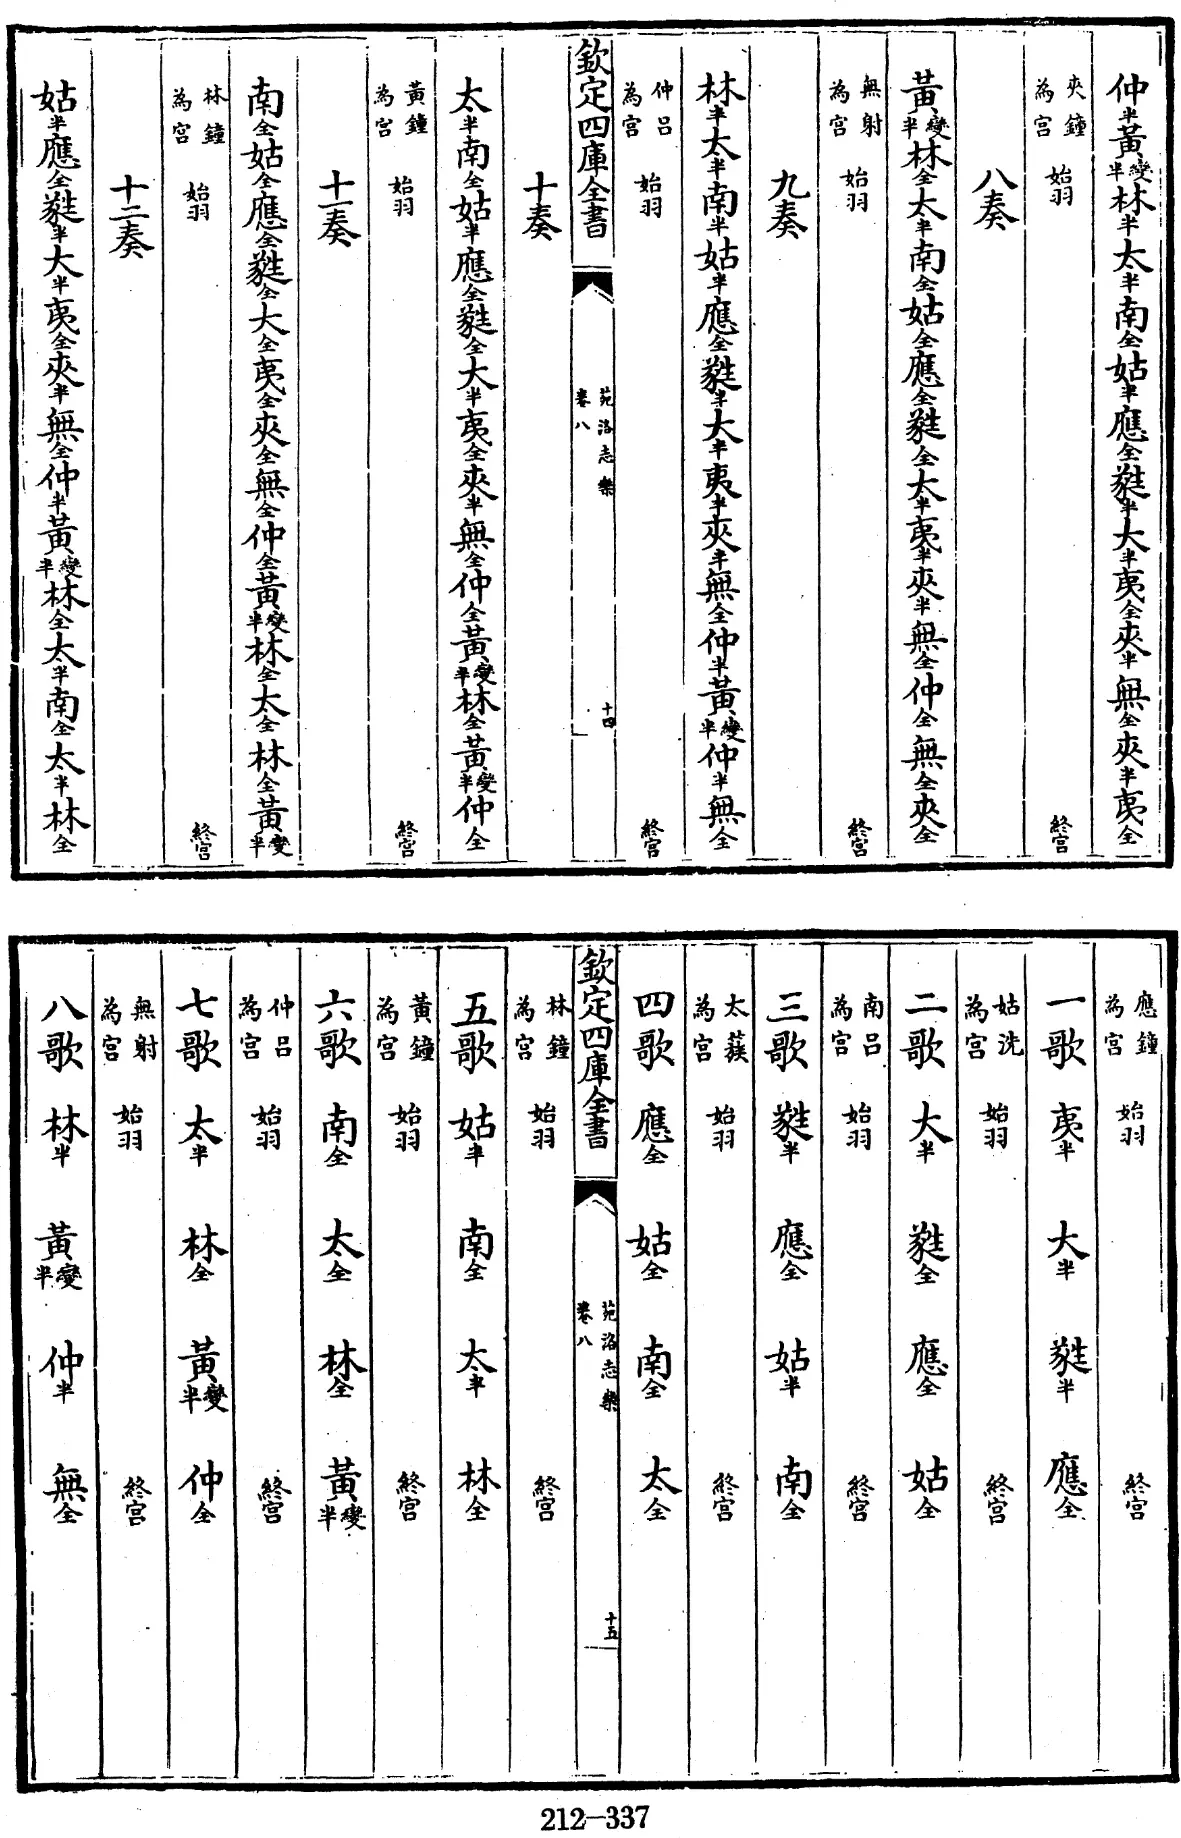 仲半黃變半林半太半南全姑半應全蕤半大半夷全夾半無全夾半夷全
夾鐘為宮 始羽 終宮
八奏
黃變半林全太半南全姑全應全蕤全大半夷半夾半無全仲全無全夾全
無射為宮 始羽 終宮
九奏
林半太半南半姑半應全蕤半大半夷半夾半無全仲半黃變半仲半無全
仲呂為宮 始羽 終宮
欽定四庫全書 苑洛志樂 卷八 十四
十奏
太半南全姑半應全蕤全大半夷全夾半無全仲全黃變半林全黃變半仲全
黃鐘為宮 始羽 終宮
十一奏
南全姑全應全蕤全大全夷全夾全無全仲全黃變半林全太全林全黃變半
林鐘為宮 始羽 終宮
十二奏
姑半應全蕤半大半夷全夾半無全仲半黃變半林全太半南全太半林全
應鐘為宮 始羽 終宮
一歌 夷半 大半 蕤半 應全
姑洗為宮 始羽 終宮
二歌 大半 蕤全 應全 姑全
南呂為宮 始羽 終宮
三歌 蕤半 應全 姑半 南全
太蔟為宮 始羽 終宮
四歌 應全 姑全 南全 太全
欽定四庫全書 苑洛志樂 卷八 十五
林鐘為宮 始羽 終宮
五歌 姑半 南全 太半 林全
黃鐘為宮 始羽 終宮
六歌 南全 太全 林全 黃變半
仲呂為宮 始羽 終宮
七歌 太半 林全 黃變半 仲全
無射為宮 始羽 終宮
八歌 林半 黃變半 仲半 無全
212-337